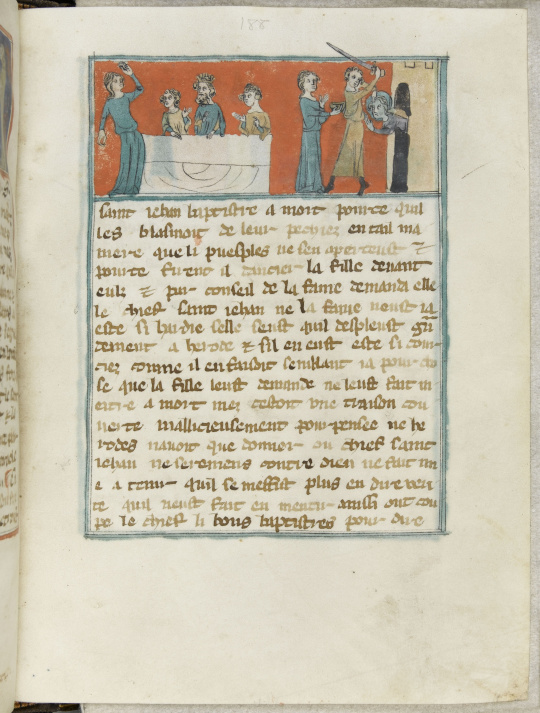 188
saint iehan baptistre a mort pour ce quil
les blasmoit de leur pechiez en tail ma
niere que li pueples ne sen aperceust ⁊
pour ce furent il dancier la fille devant
euls ⁊ par conseil de la fame demanda elle
le chief saint iehan ne la fame neust ia
este si hardie selle seust quil despleust gⁿ
dement a herode ⁊ sil en eust este si cour
ciez comme il en faisoit semblant ia pour cho
se que la fille leust demande ne leust fait m
etre a mort mez cestoit une traison cou
verte malicieusement pourpensee ne he
rodes navoit que donner ou chief saint
iehan ne seremens contre dieu ne fait mi
e a tenir quil se meffist plus en dire veri
te quil neust fait en mentir aussi ont cou
pe le chief li bons baptistres pour dire